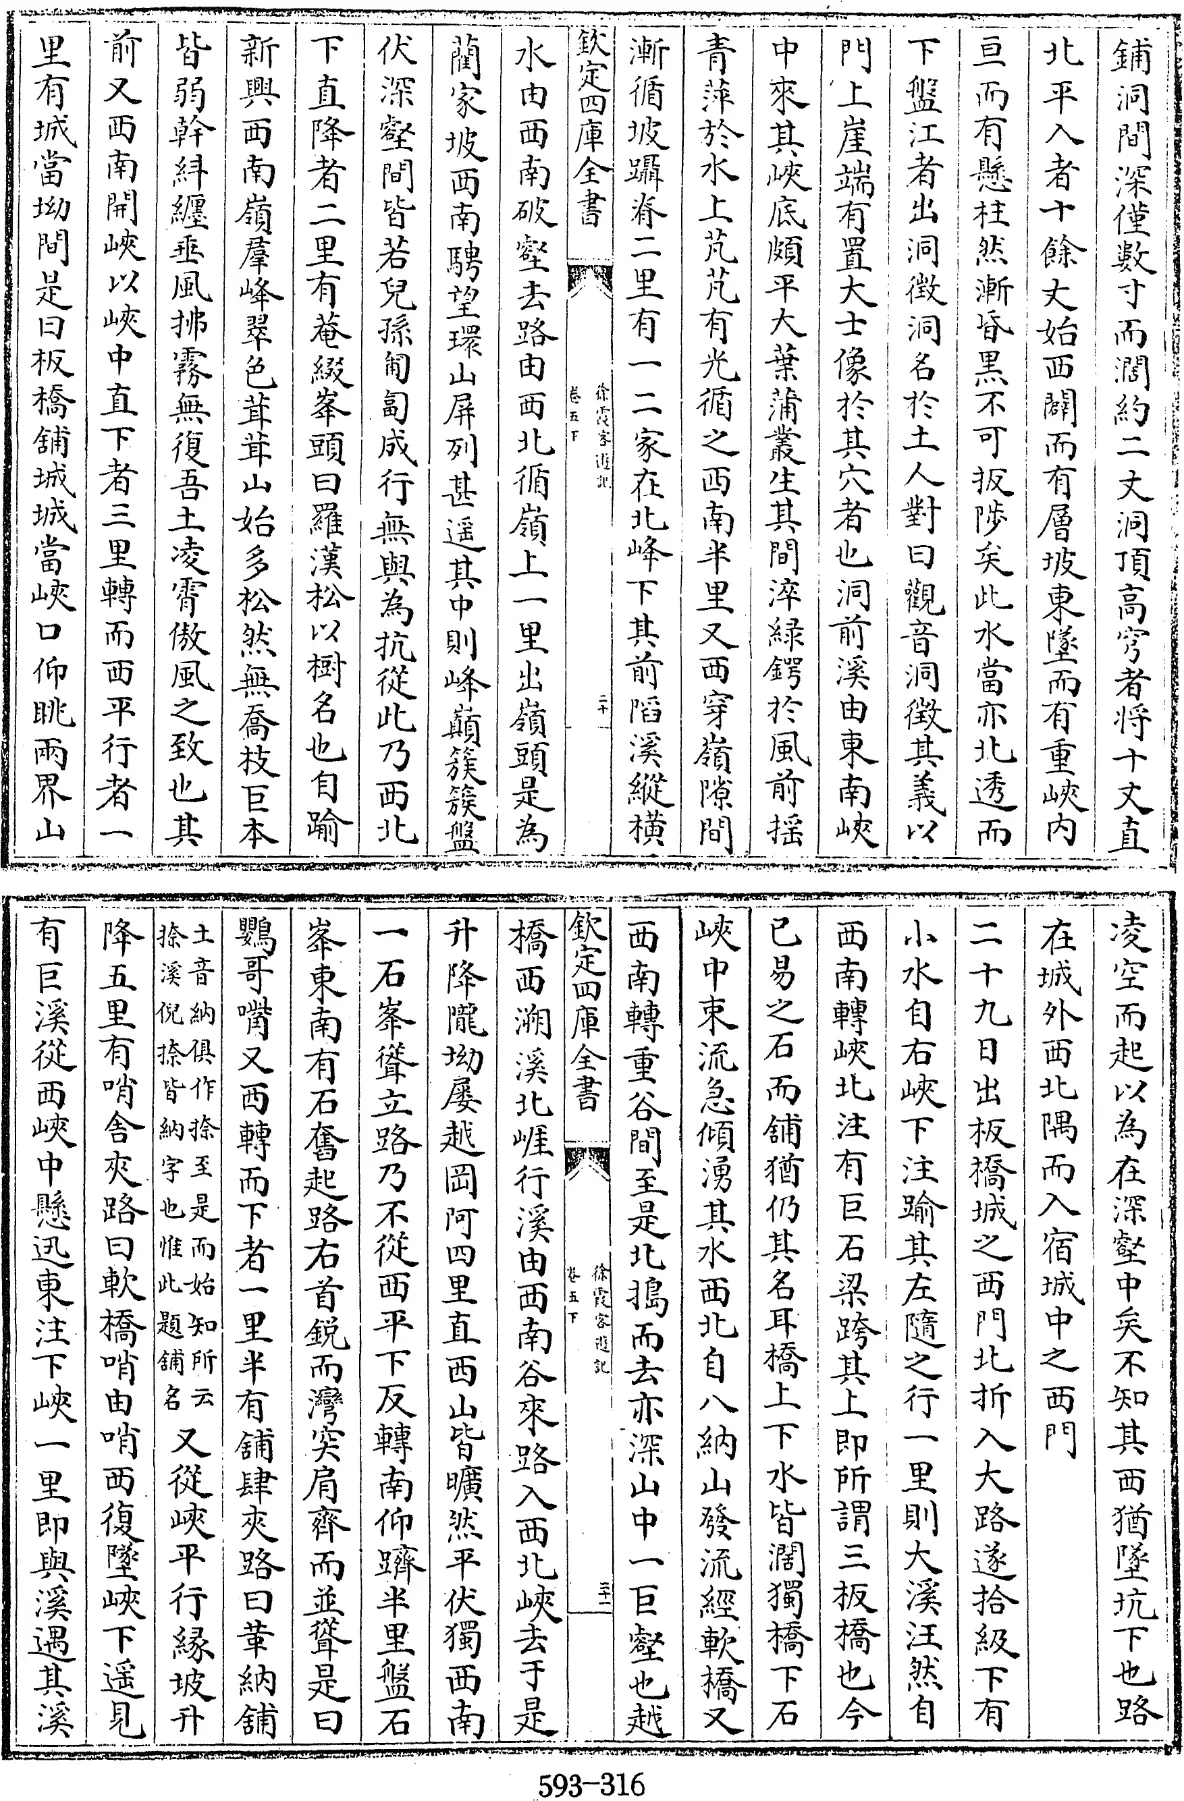 鋪洞間深僅數寸而濶約二丈洞頂高穹者將十丈直
北平入者十餘丈始西闢而有層坡東墜而有重峽内
亘而有懸柱然漸昏黒不可扳陟矣此水當亦北透而
下盤江者出洞徴洞名於土人對曰觀音洞徴其義以
門上崖端有置大士像於其穴者也洞前溪由東南峽
中來其峽底頗平大葉蒲叢生其間淬緑鍔於風前揺
青萍於水上芃芃有光循之西南半里又西穿嶺隙間
漸循坡躡脊二里有一二家在北峰下其前陷溪縱横
欽定四庫全書
徐霞客遊記
卷五下
三十一
水由西南破壑去路由西北循嶺上一里出嶺頭是為
蘭家坡西南騁望環山屏列甚遥其中則峰巔簇簇盤
伏深壑間皆若兒孫匍匐成行無與為抗從此乃西北
下直降者二里有菴綴峯頭曰羅漢松以樹名也自踰
新興西南嶺羣峰翠色茸茸山始多松然無喬枝巨本
皆弱幹紏纒垂風拂霧無復吾土凌霄傲風之致也其
前又西南開峽以峽中直下者三里轉而西平行者一
里有城當坳間是曰板橋舖城城當峽口仰眺兩界山
凌空而起以為在深壑中矣不知其西猶墜坑下也路
在城外西北隅而入宿城中之西門
二十九日出板橋城之西門北折入大路遂拾級下有
小水自右峽下注踰其左隨之行一里則大溪汪然自
西南轉峽北注有巨石梁跨其上即所謂三板橋也今
已易之石而舖猶仍其名耳橋上下水皆濶獨橋下石
峽中束流急傾湧其水西北自八納山發流經軟橋又
西南轉重谷間至是北搗而去亦深山中一巨壑也越
欽定四庫全書
徐霞客遊記
卷五下
三十一
橋西溯溪北崕行溪由西南谷來路入西北峽去于是
升降隴坳屢越岡阿四里直西山皆曠然平伏獨西南
一石峯聳立路乃不從西平下反轉南仰躋半里盤石
峯東南有石奮起路右首鋭而灣突肩齊而並聳是曰
鸚哥嘴又西轉而下者一里半有舖肆夾路曰革納舖
土音納俱作捺至是而始知所云
捺溪倪捺皆納字也惟此題舖名
又從峽平行縁坡升
降五里有哨舍夾路曰軟橋哨由哨西復墜峽下遥見
有巨溪從西峽中懸迅東注下峽一里即與溪遇其溪
593-316